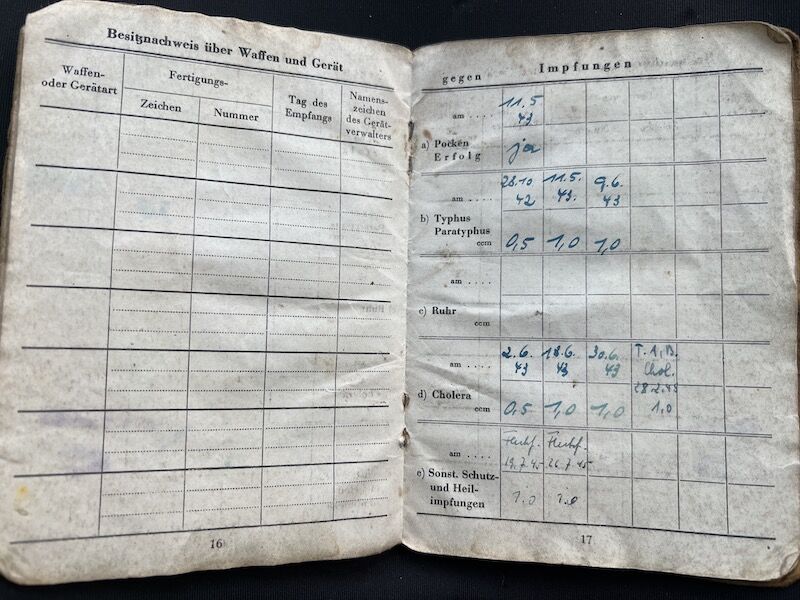 Besitznachweis über Waffen und Gerät
Waffen-
oder Gerätart
Fertigungs-
Zeichen
Nummer
Tag des
Empfangs
Namens-
zeichen
des Gerät-
verwalters
16
gegen
Impfungen
am ....
11.5
43
a) Pocken
Erfolg
ja
am ....
28.10
42
11.5.
43.
9.6.
43
b) Typhus
Paratyphus
ccm
0,5
1,0
1,0
am ....
c) Ruhr
ccm
am ....
2.6.
43
18.6.
43
30.6.
43
Chol.
28.2.45
1,0
d) Cholera
ccm
0,5
1,0
1,0
am ....
19.7.45
26.7.45
e) Sonst. Schutz-
und Heil-
impfungen
1.0
1.0
17